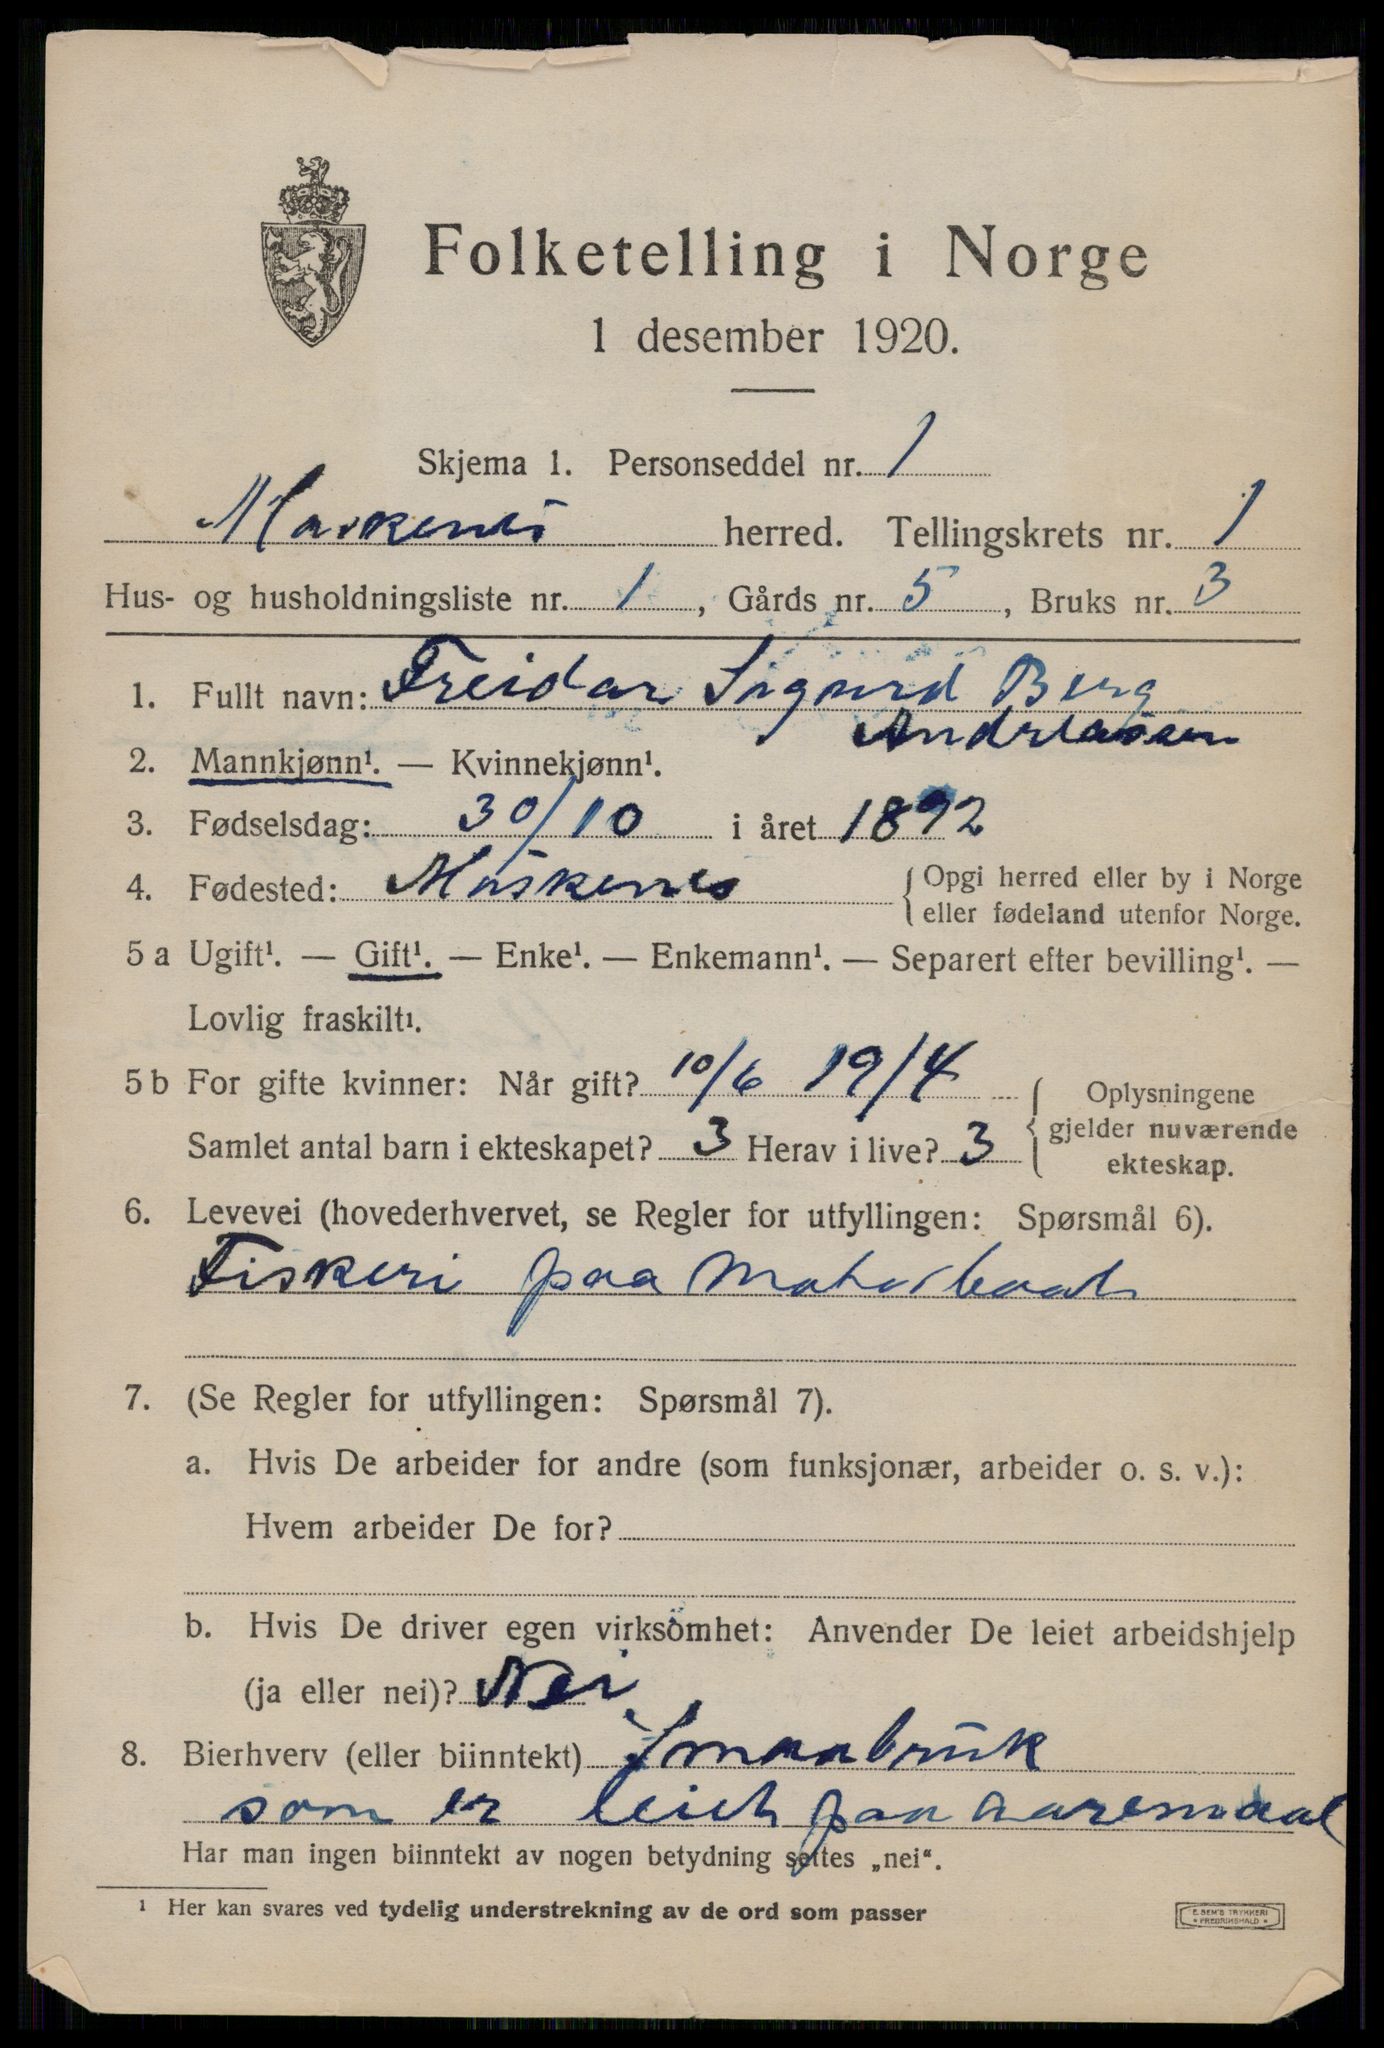 Folketelling i Norge
1 desember 1920.
Skjema 1. Personseddel nr. 1
Moskenes herred. Tellingskrets nr. 1
Hus- og husholdningsliste nr. 1, Gårds nr. 5, Bruks nr. 3
1. Fullt navn: Freidar Sigurd Berg
Andreassen
2. Mannkjønn¹. — Kvinnekjønn¹.
3. Fødselsdag: 30/10 i året 1892
4. Fødested: Moskenes { Opgi herred eller by i Norge
eller fødeland utenfor Norge.
5 a Ugift¹. — Gift¹. — Enke¹. — Enkemann¹. — Separert efter bevilling¹. —
Lovlig fraskilt¹.
5 b For gifte kvinner: Når gift? 10/6 1914
Samlet antal barn i ekteskapet? 3 Herav i live? 3
{ Oplysningene
gjelder nuværende
ekteskap.
6. Levevei (hovederhvervet, se Regler for utfyllingen: Spørsmål 6).
Fiskeri paa Motorbaat
7. (Se Regler for utfyllingen: Spørsmål 7).
a. Hvis De arbeider for andre (som funksjonær, arbeider o. s. v.):
Hvem arbeider De for?
b. Hvis De driver egen virksomhet: Anvender De leiet arbeidshjelp
(ja eller nei)? Nei
8. Bierhverv (eller biinntekt) Smaabruk
som er leiet paa aaremaal
Har man ingen biinntekt av nogen betydning settes „nei“.
¹ Her kan svares ved tydelig understrekning av de ord som passer
E. SEM'S TRYKKERI
* FREDRIKSHALD *